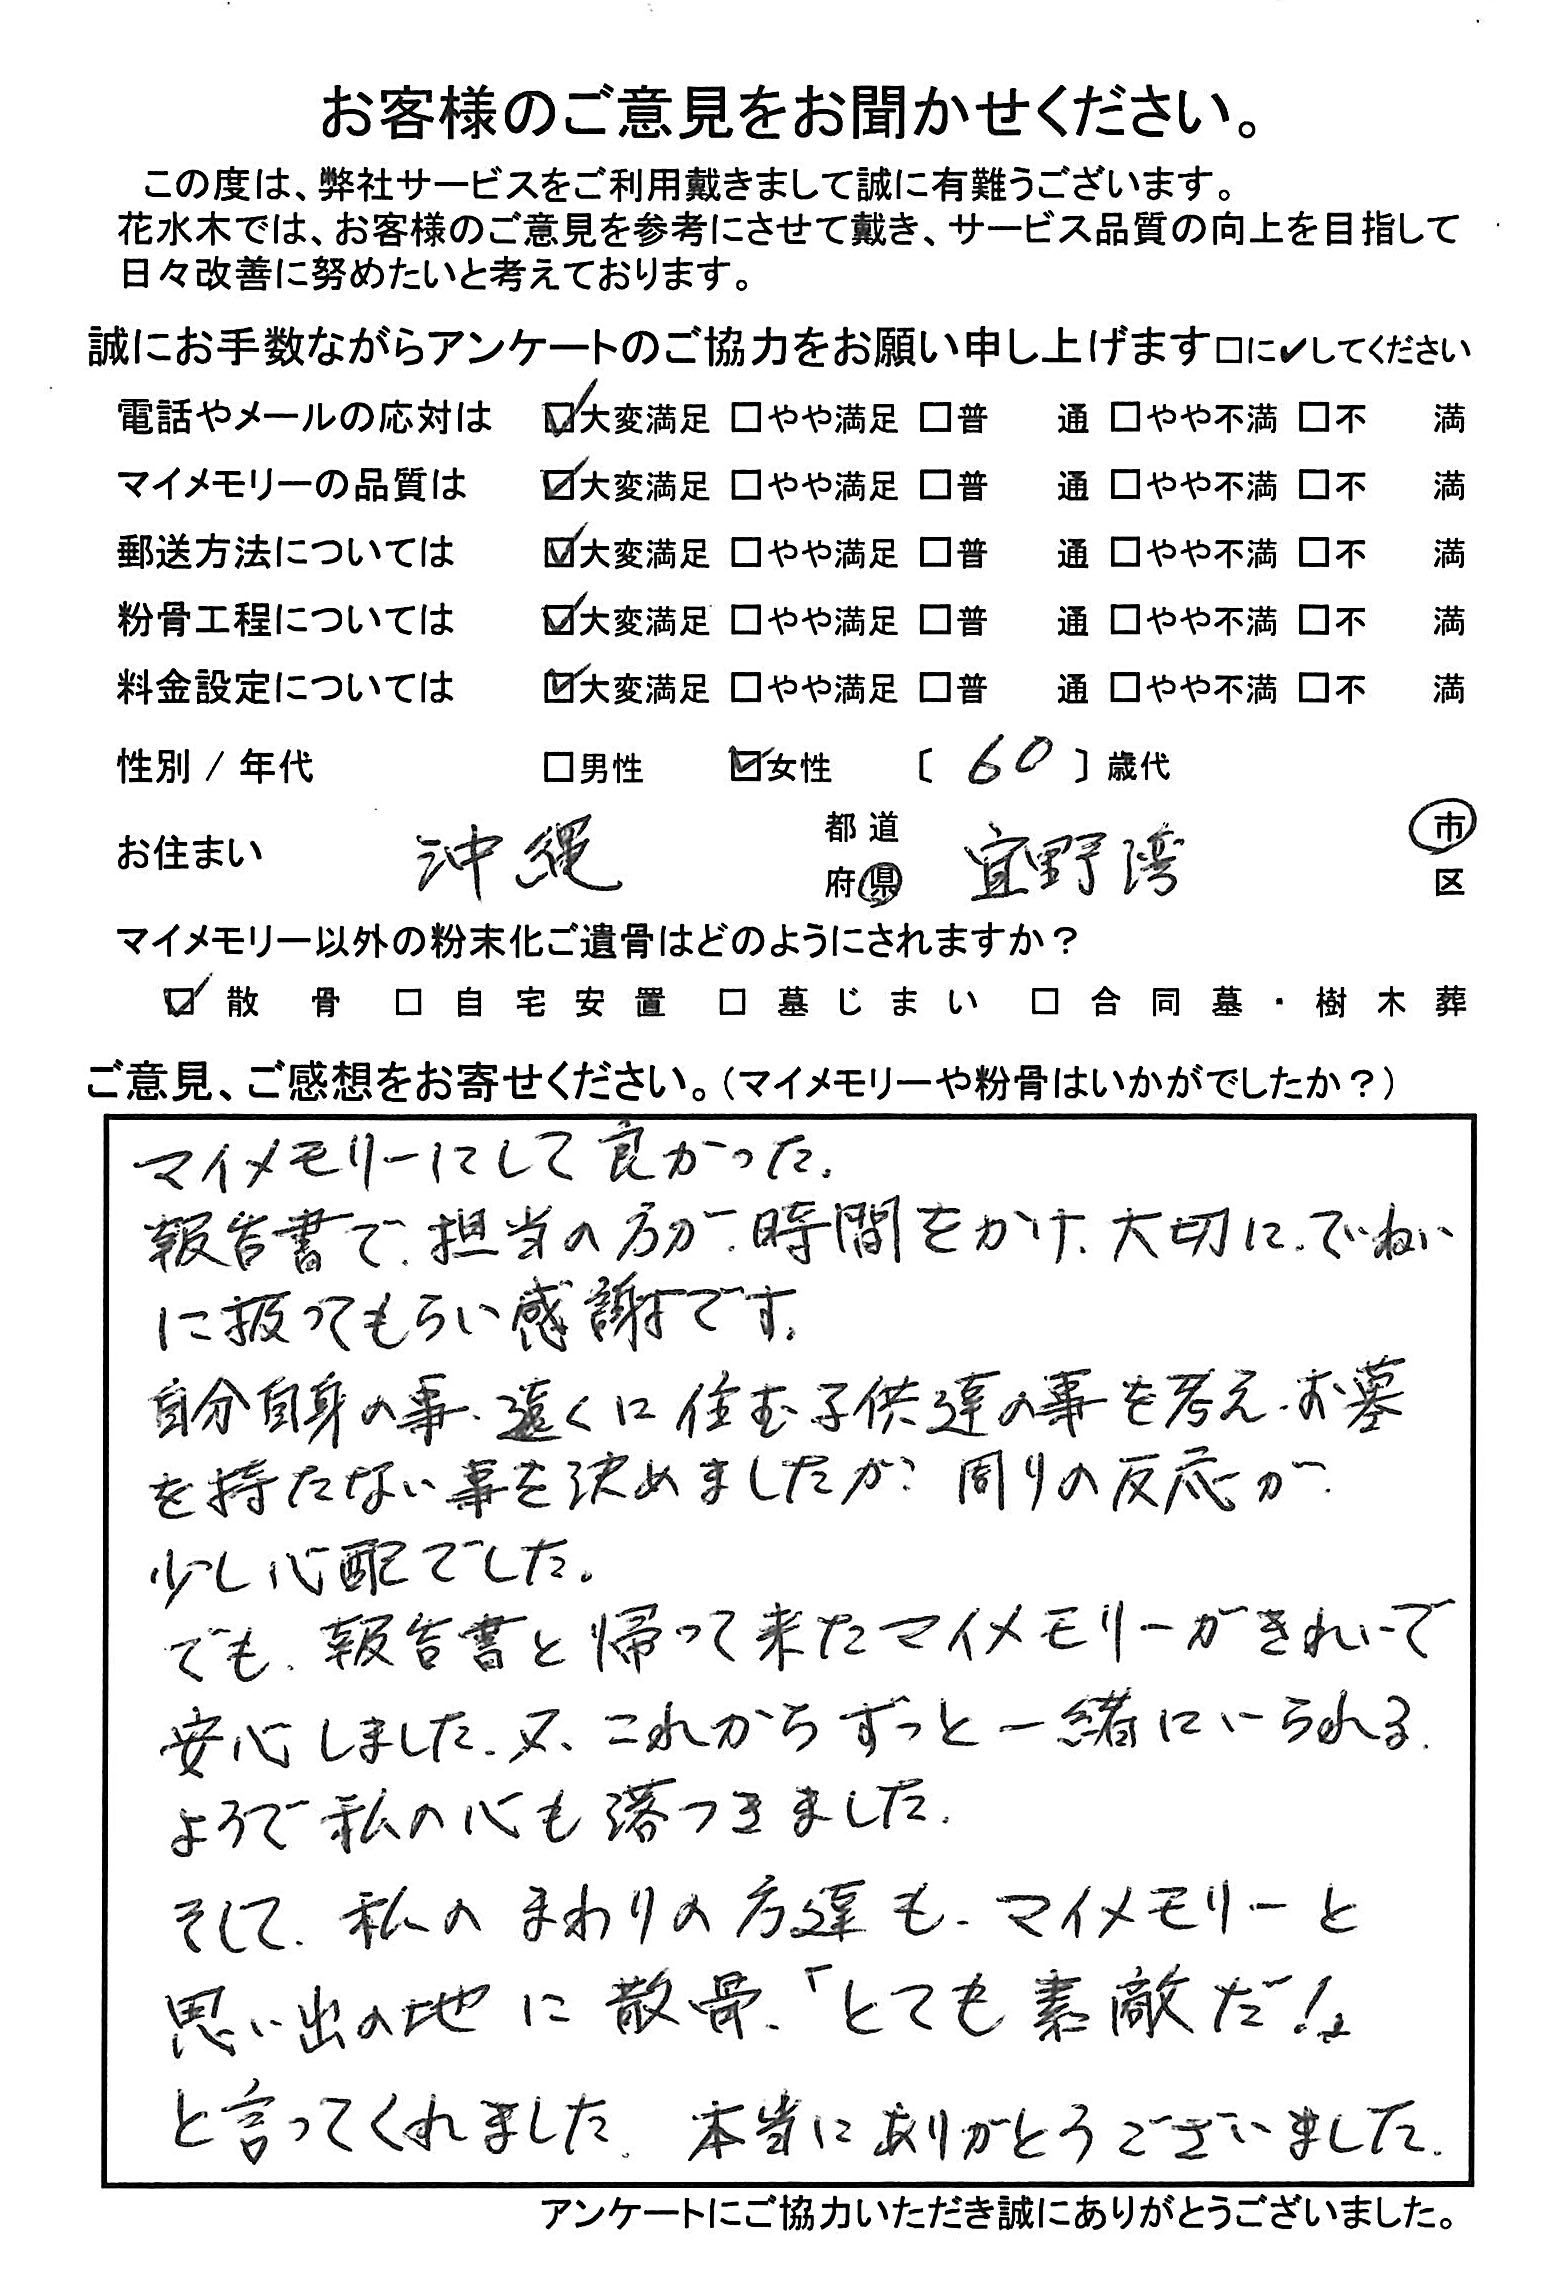 お客様のご意見をお聞かせください。
この度は、弊社サービスをご利用戴きまして誠に有難うございます。
花水木では、お客様のご意見を参考にさせて戴き、サービス品質の向上を目指して
日々改善に努めたいと考えております。
誠にお手数ながらアンケートのご協力をお願い申し上げます□に✔してください
電話やメールの応対は ☑大変満足 □やや満足 □普 通 □やや不満 □不 満
マイメモリーの品質は ☑大変満足 □やや満足 □普 通 □やや不満 □不 満
郵送方法については ☑大変満足 □やや満足 □普 通 □やや不満 □不 満
粉骨工程については ☑大変満足 □やや満足 □普 通 □やや不満 □不 満
料金設定については ☑大変満足 □やや満足 □普 通 □やや不満 □不 満
性別 / 年代 □男性 ☑女性 〔 60 〕歳代
お住まい 沖縄 都道府県 宜野湾 市区
マイメモリー以外の粉末化ご遺骨はどのようにされますか？
☑ 散骨 □ 自宅安置 □ 墓じまい □ 合同墓・樹木葬
ご意見、ご感想をお寄せください。（マイメモリーや粉骨はいかがでしたか？）
マイメモリーにして良かった。
報告書で、担当の方が、時間をかけ、大切に、でいねい
に扱ってもらい感謝です。
自分自身の事、遠くに住む子供達の事を考え、お墓
を持たない事を決めましたが、周りの反応が、
少し心配でした。
でも、報告書と帰って来たマイメモリーがきれいで
安心しました。又、これからずっと一緒にいられる
ようで私の心も落つきました。
そして、私のまわりの方達も、マイメモリーと
思い出の地に散骨、「とても素敵だ！」
と言ってくれました。本当にありがとうございました。
アンケートにご協力いただき誠にありがとうございました。